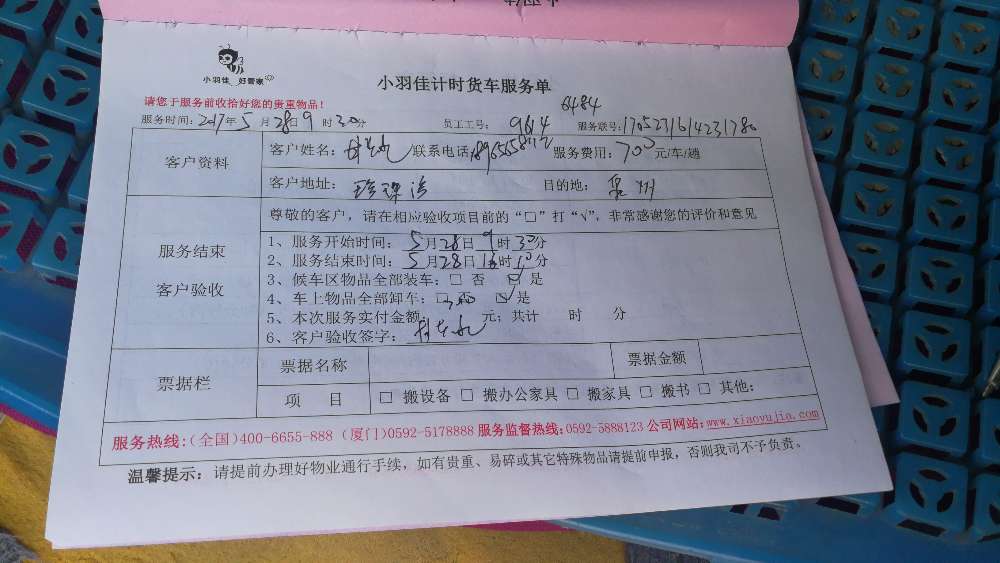 小羽佳 好管家
小羽佳计时货车服务单
请您于服务前收拾好您的贵重物品!
6484
服务时间: 2017年 5 月 28日 9 时 30分 员工工号: 9614 服务联号:
客户资料
客户姓名: 联系电话: 服务费用: 700 元/车/趟
客户地址: 珍珠湾 目的地: 泉州
尊敬的客户，请在相应验收项目前的“□”打“√”，非常感谢您的评价和意见
服务结束
客户验收
1、服务开始时间: 5月28日 9时30分
2、服务结束时间: 5月28日 时 分
3、候车区物品全部装车: □ 否 ☑ 是
4、车上物品全部卸车: □ 否 ☑ 是
5、本次服务实付金额: 元; 共计 时 分
6、客户验收签字:
票据栏
票据名称 票据金额
项 目 □ 搬设备 □ 搬办公家具 □ 搬家具 □ 搬书 □ 其他:
服务热线:(全国)400-6655-888 (厦门)0592-5178888 服务监督热线:0592-5888123 公司网站:www.xiaoyujia.com
温馨提示: 请提前办理好物业通行手续，如有贵重、易碎或其它特殊物品请提前申报，否则我司不予负责。